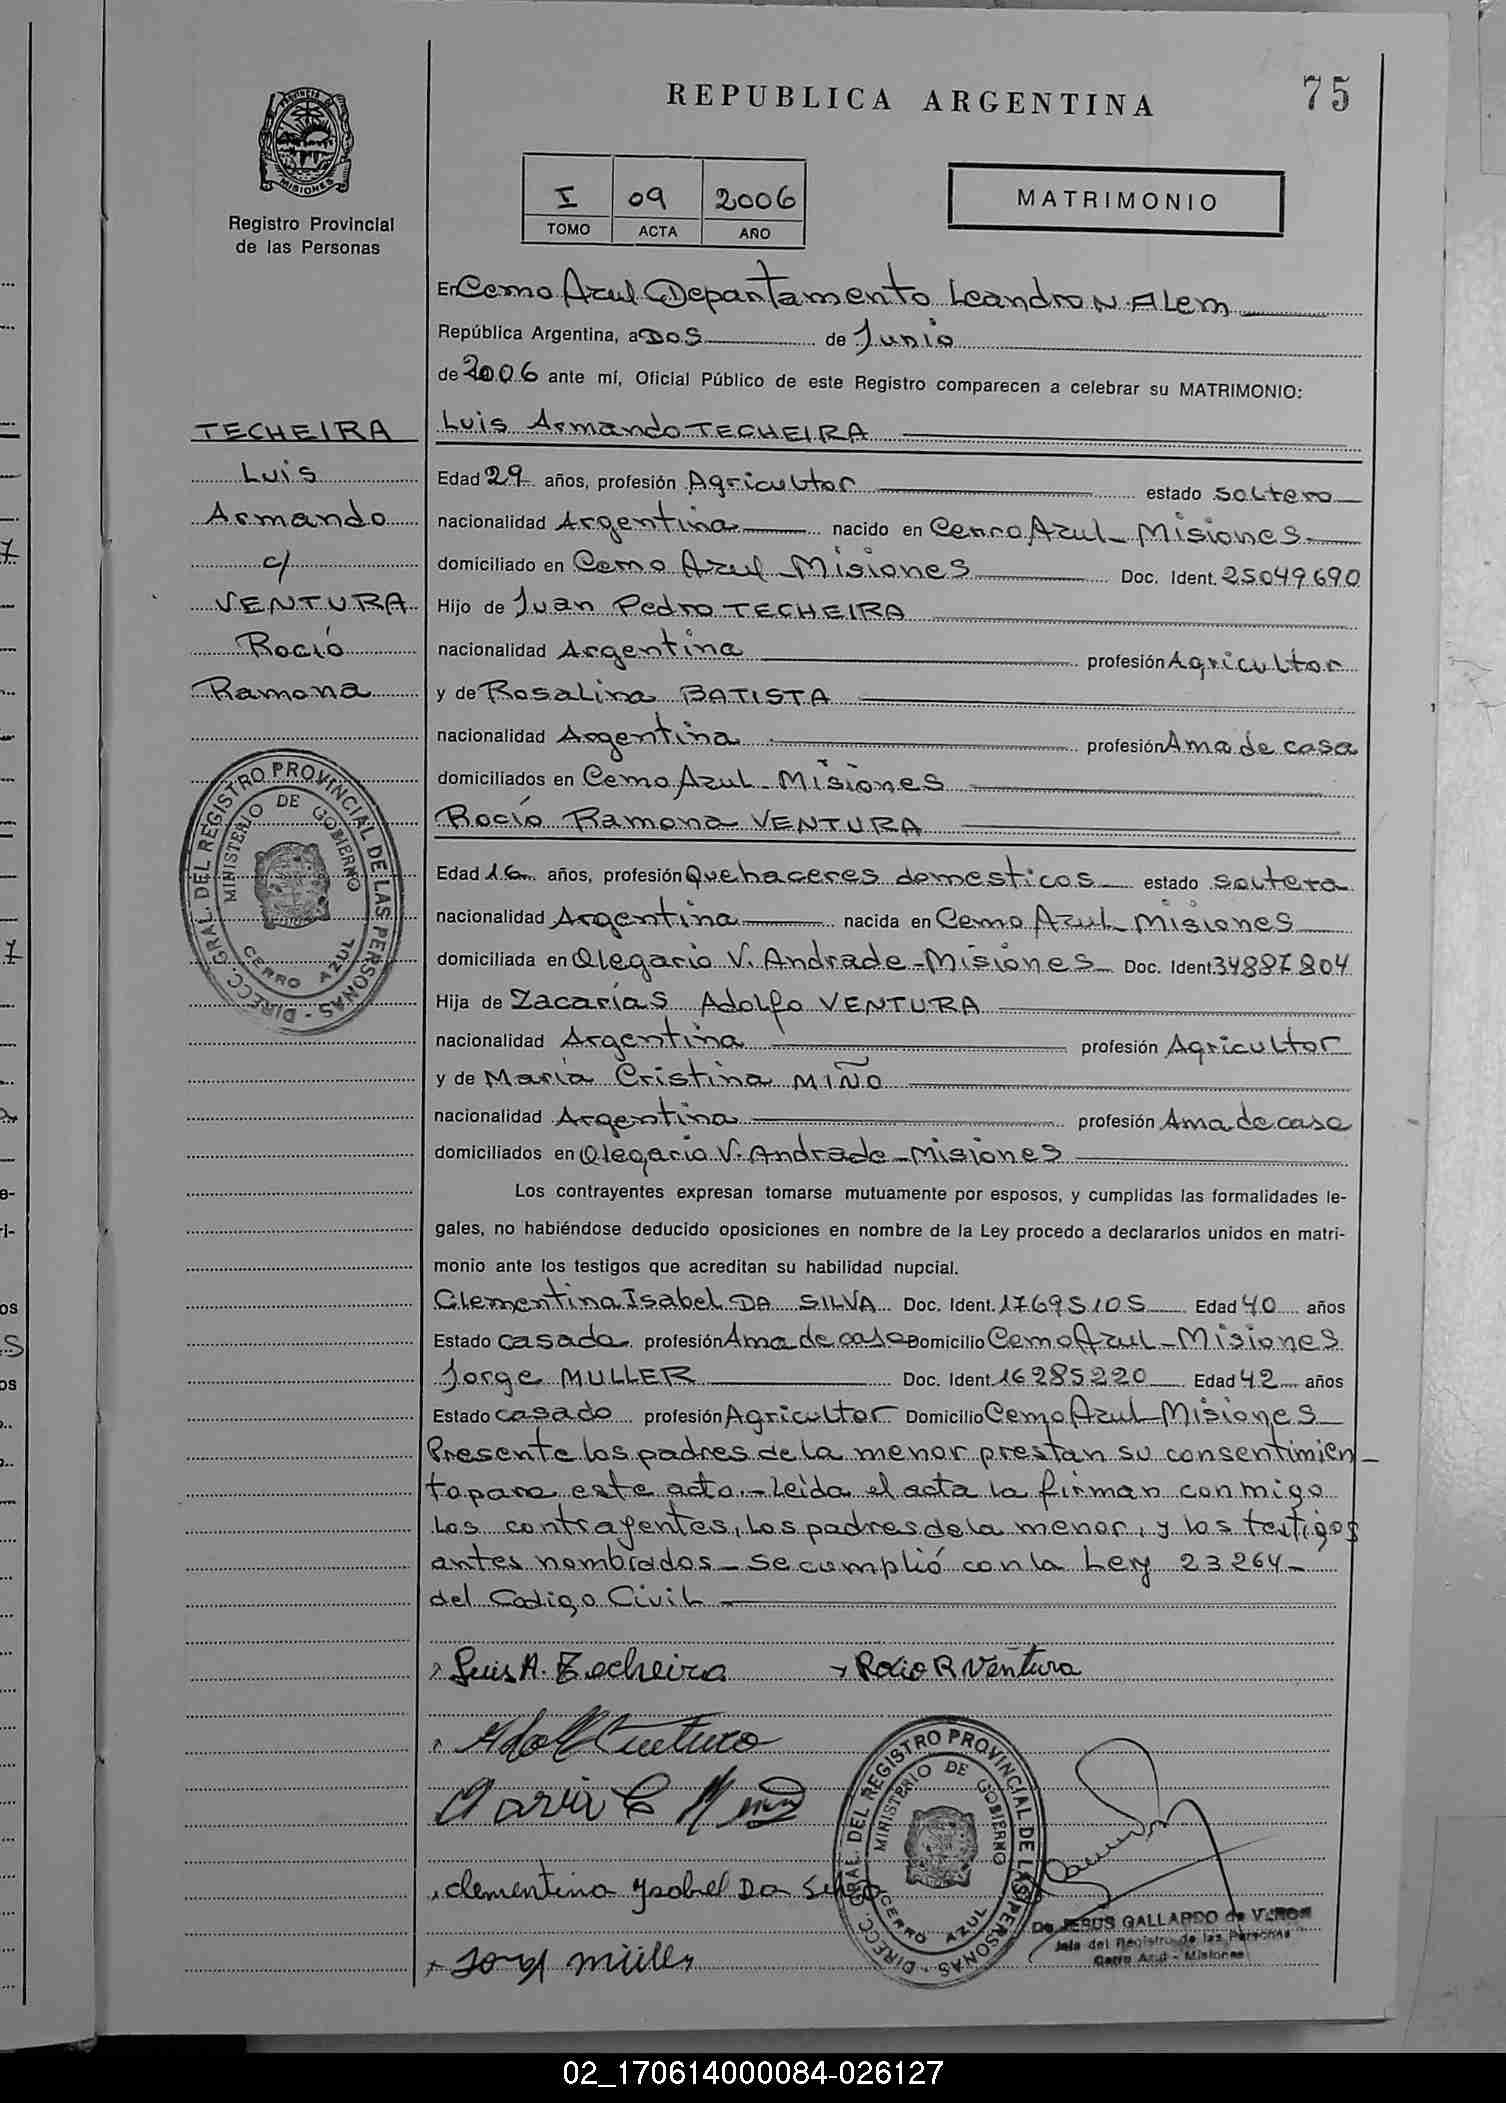 75
REPUBLICA ARGENTINA
PROVINCIA DE MISIONES
Registro Provincial
de las Personas
I 09 2006
TOMO ACTA AÑO
MATRIMONIO
En Cerro Azul Departamento Leandro N. Alem
República Argentina, a DOS de Junio
de 2006 ante mí, Oficial Público de este Registro comparecen a celebrar su MATRIMONIO:
TECHEIRA
Luis
Armando
c/
VENTURA
Rocío
Ramona
Luis Armando TECHEIRA
Edad 29 años, profesión Agricultor estado soltero
nacionalidad Argentina nacido en Cerro Azul - Misiones
domiciliado en Cerro Azul - Misiones Doc. Ident. 25049690
Hijo de Juan Pedro TECHEIRA
nacionalidad Argentina profesión Agricultor
y de Rosalina BATISTA
nacionalidad Argentina profesión Ama de casa
domiciliados en Cerro Azul - Misiones
Rocío Ramona VENTURA
Edad 16 años, profesión Quehaceres domesticos estado soltera
nacionalidad Argentina nacida en Cerro Azul - Misiones
domiciliada en Olegario V. Andrade - Misiones Doc. Ident. 34887804
Hija de Zacarías Adolfo VENTURA
nacionalidad Argentina profesión Agricultor
y de María Cristina MIÑO
nacionalidad Argentina profesión Ama de casa
domiciliados en Olegario V. Andrade - Misiones
Los contrayentes expresan tomarse mutuamente por esposos, y cumplidas las formalidades le-
gales, no habiéndose deducido oposiciones en nombre de la Ley procedo a declararlos unidos en matri-
monio ante los testigos que acreditan su habilidad nupcial.
Clementina Isabel DA SILVA Doc. Ident. 17695105 Edad 40 años
Estado casada profesión Ama de casa Domicilio Cerro Azul - Misiones
Jorge MULLER Doc. Ident. 16285220 Edad 42 años
Estado casado profesión Agricultor Domicilio Cerro Azul - Misiones
Presente los padres de la menor prestan su consentimien-
to para este acto. - Leída el acta la firman conmigo
los contrayentes, los padres de la menor, y los testigos
antes nombrados - se cumplió con la Ley 23264 -
del Codigo Civil
DIRECC. GRAL. DEL REGISTRO PROVINCIAL DE LAS PERSONAS
MINISTERIO DE GOBIERNO
CERRO AZUL
Luis A. Techeira Rocio R Ventura
Adolf Ventura
Maria C Miño
Clementina Ysabel Da Silva
Jorge Müller
DIRECC. GRAL. DEL REGISTRO PROVINCIAL DE LAS PERSONAS
MINISTERIO DE GOBIERNO
CERRO AZUL
JESUS GALLARDO de VERON
Jefa del Registro de las Personas
Cerro Azul - Misiones
02_170614000084-026127